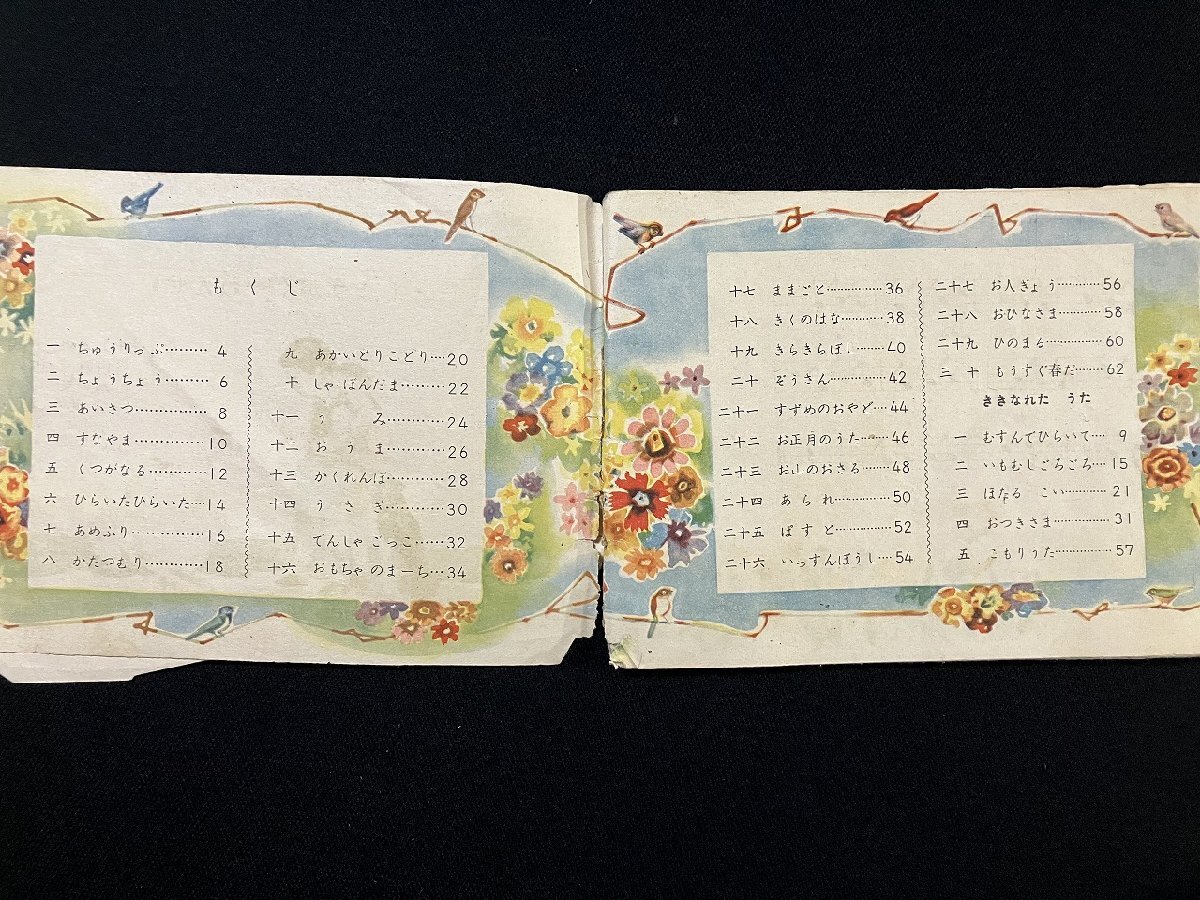 もくじ
一 ちゅうりっぷ………4
二 ちょうちょう………6
三 あいさつ……………8
四 すなやま…………10
五 くつがなる………12
六 ひらいたひらいた…14
あめふり…………16
八 かたつむり…………18
九 あかいとりことり…20
十 しゃぼんだま………22
十一 み…………24
十二 おうま…………26
十三 かくれんぼ………28
十四 うさぎ…………30
十五 でんしゃごっこ…32
十六 おもちゃのまーち…34
十七 ままごと…………36
十八 きくのはな………38
十九 きらきらぼし……40
二十 ぞうさん…………42
二十一 すずめのおやど…44
二十二 お正月のうた……46
二十三 お山のおさる……48
二十四 あられ…………50
二十五 ばすと…………52
二十六 いっすんぼうし…54
二十七 お人ぎょう………56
二十八 おひなさま………58
二十九 ひのまる………60
三十 もうすぐ春だ……62
ききなれた うた
一 むすんでひらいて…9
二 いもむしごろごろ…15
三 ほたる こい………21
四 おつきさま…………31
五 こもりうた…………57